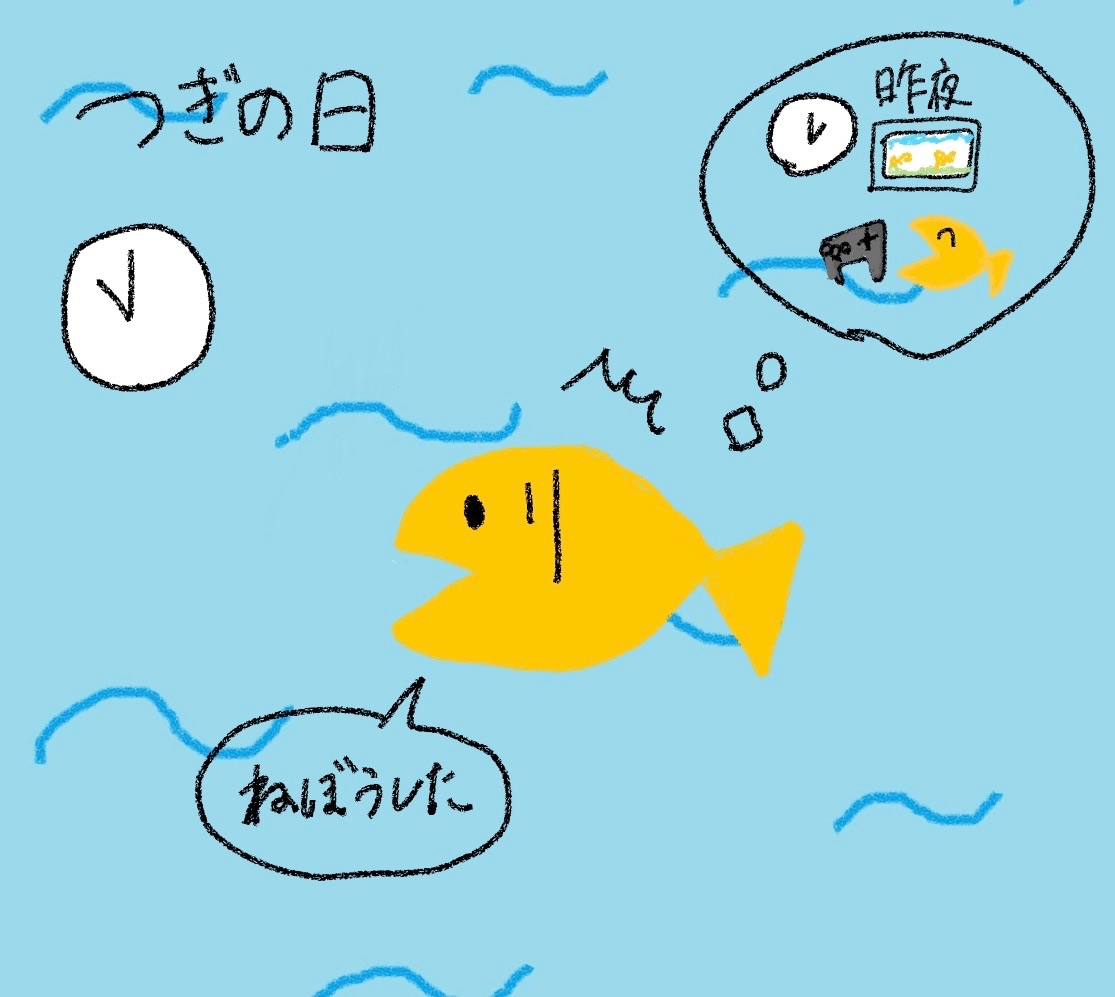 つぎの日
昨夜
ねぼうした